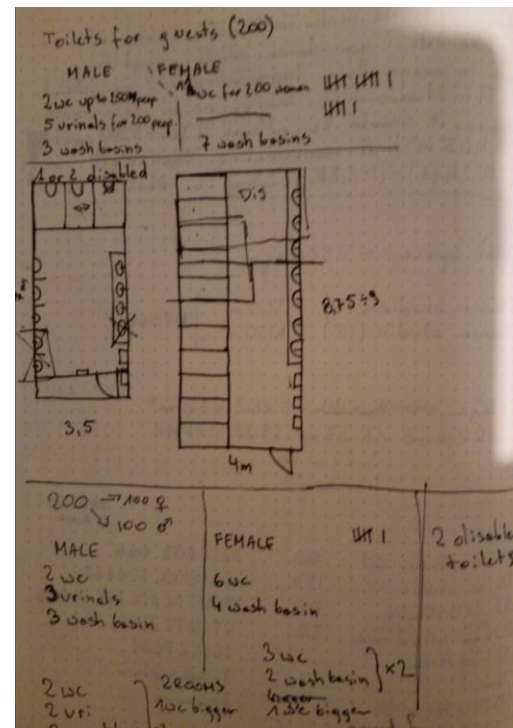 Toilets for guests (200)
MALE
FEMALE
2 wc up to 200
5 urinals for 200 peop.
3 wash basins
11 wc for 200 women
7 wash basins
1 or 2 disabled
Dis
7m
3,5
8,75÷9
4m
200 → 100 ♀
↘ 100 ♂
MALE
2 wc
3 urinals
3 wash basin
FEMALE
6 wc
4 wash basin
2 disable
toilets
2 wc
2 uri
2 ROOMS
1 wc bigger
3 wc
2 wash basin } x2
1 wc bigger